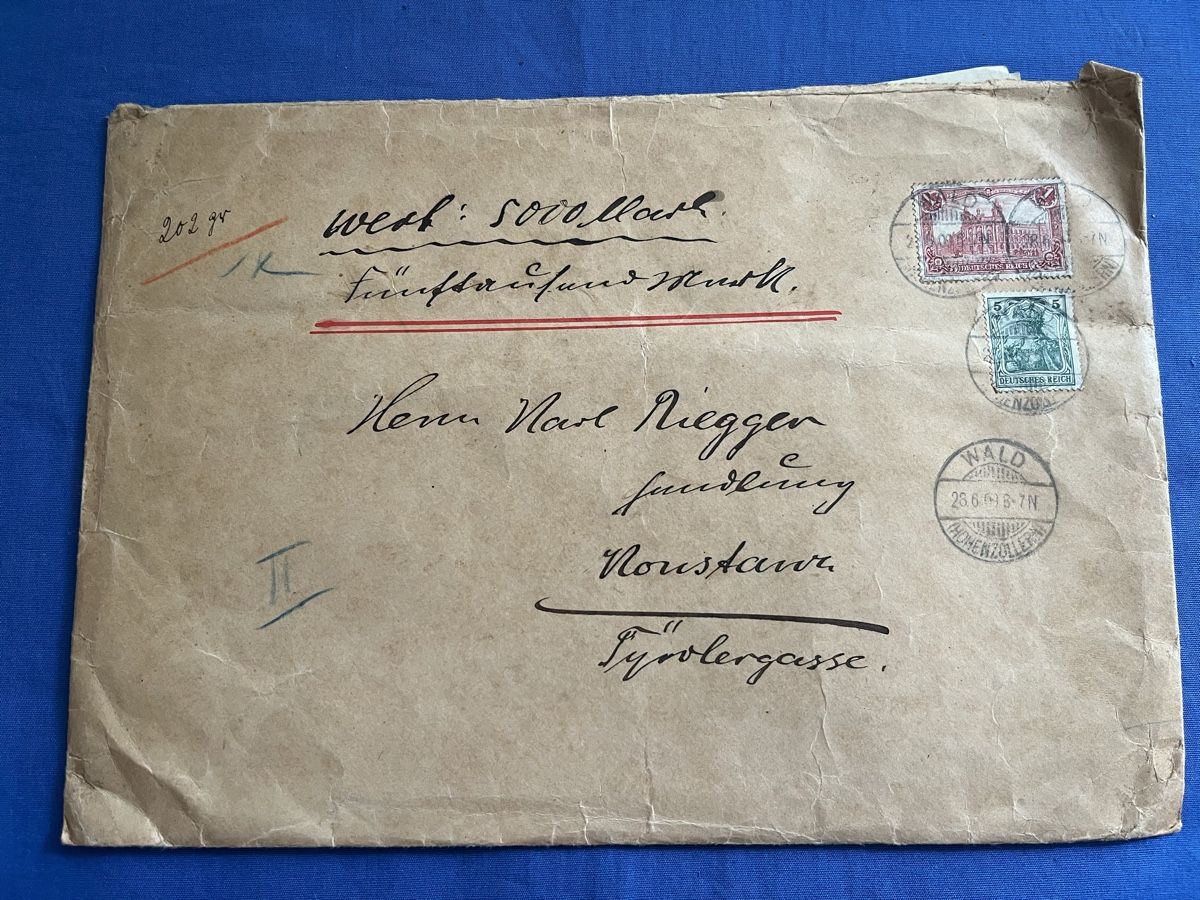 202 gr
Wert: 5000 Mark.
Fünftausend Mark.
Herrn Karl Riegger
Handlung
Konstanz
Tyrolergasse.
II
1
DEUTSCHES REICH
5 5
DEUTSCHES REICH
WALD
28.6.09 6-7N
(HOHENZOLLERN)